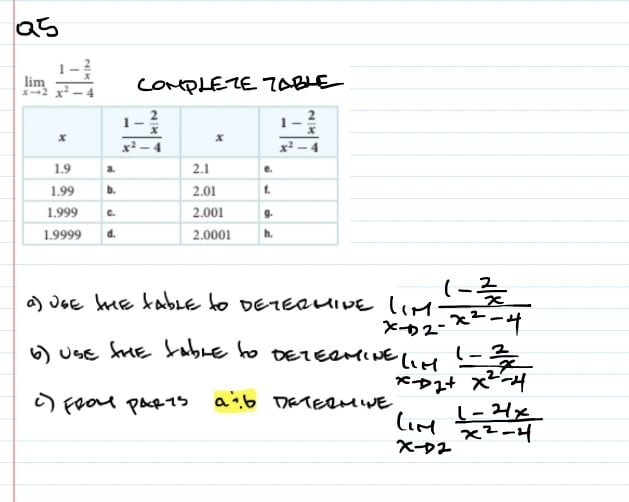 Q5
lim x→2 (1 − 2/x)/(x² − 4) COMPLETE TABLE
x (1 − 2/x)/(x² − 4) x (1 − 2/x)/(x² − 4)
1.9 a. 2.1 e.
1.99 b. 2.01 f.
1.999 c. 2.001 g.
1.9999 d. 2.0001 h.
a) USE THE TABLE to DETERMINE lim x→2- (1 − 2/x)/(x² − 4)
b) USE THE TABLE to DETERMINE lim x→2+ (1 − 2/x)/(x² − 4)
c) FROM PARTS a÷b DETERMINE lim x→2 (1 − 2/x)/(x² − 4)